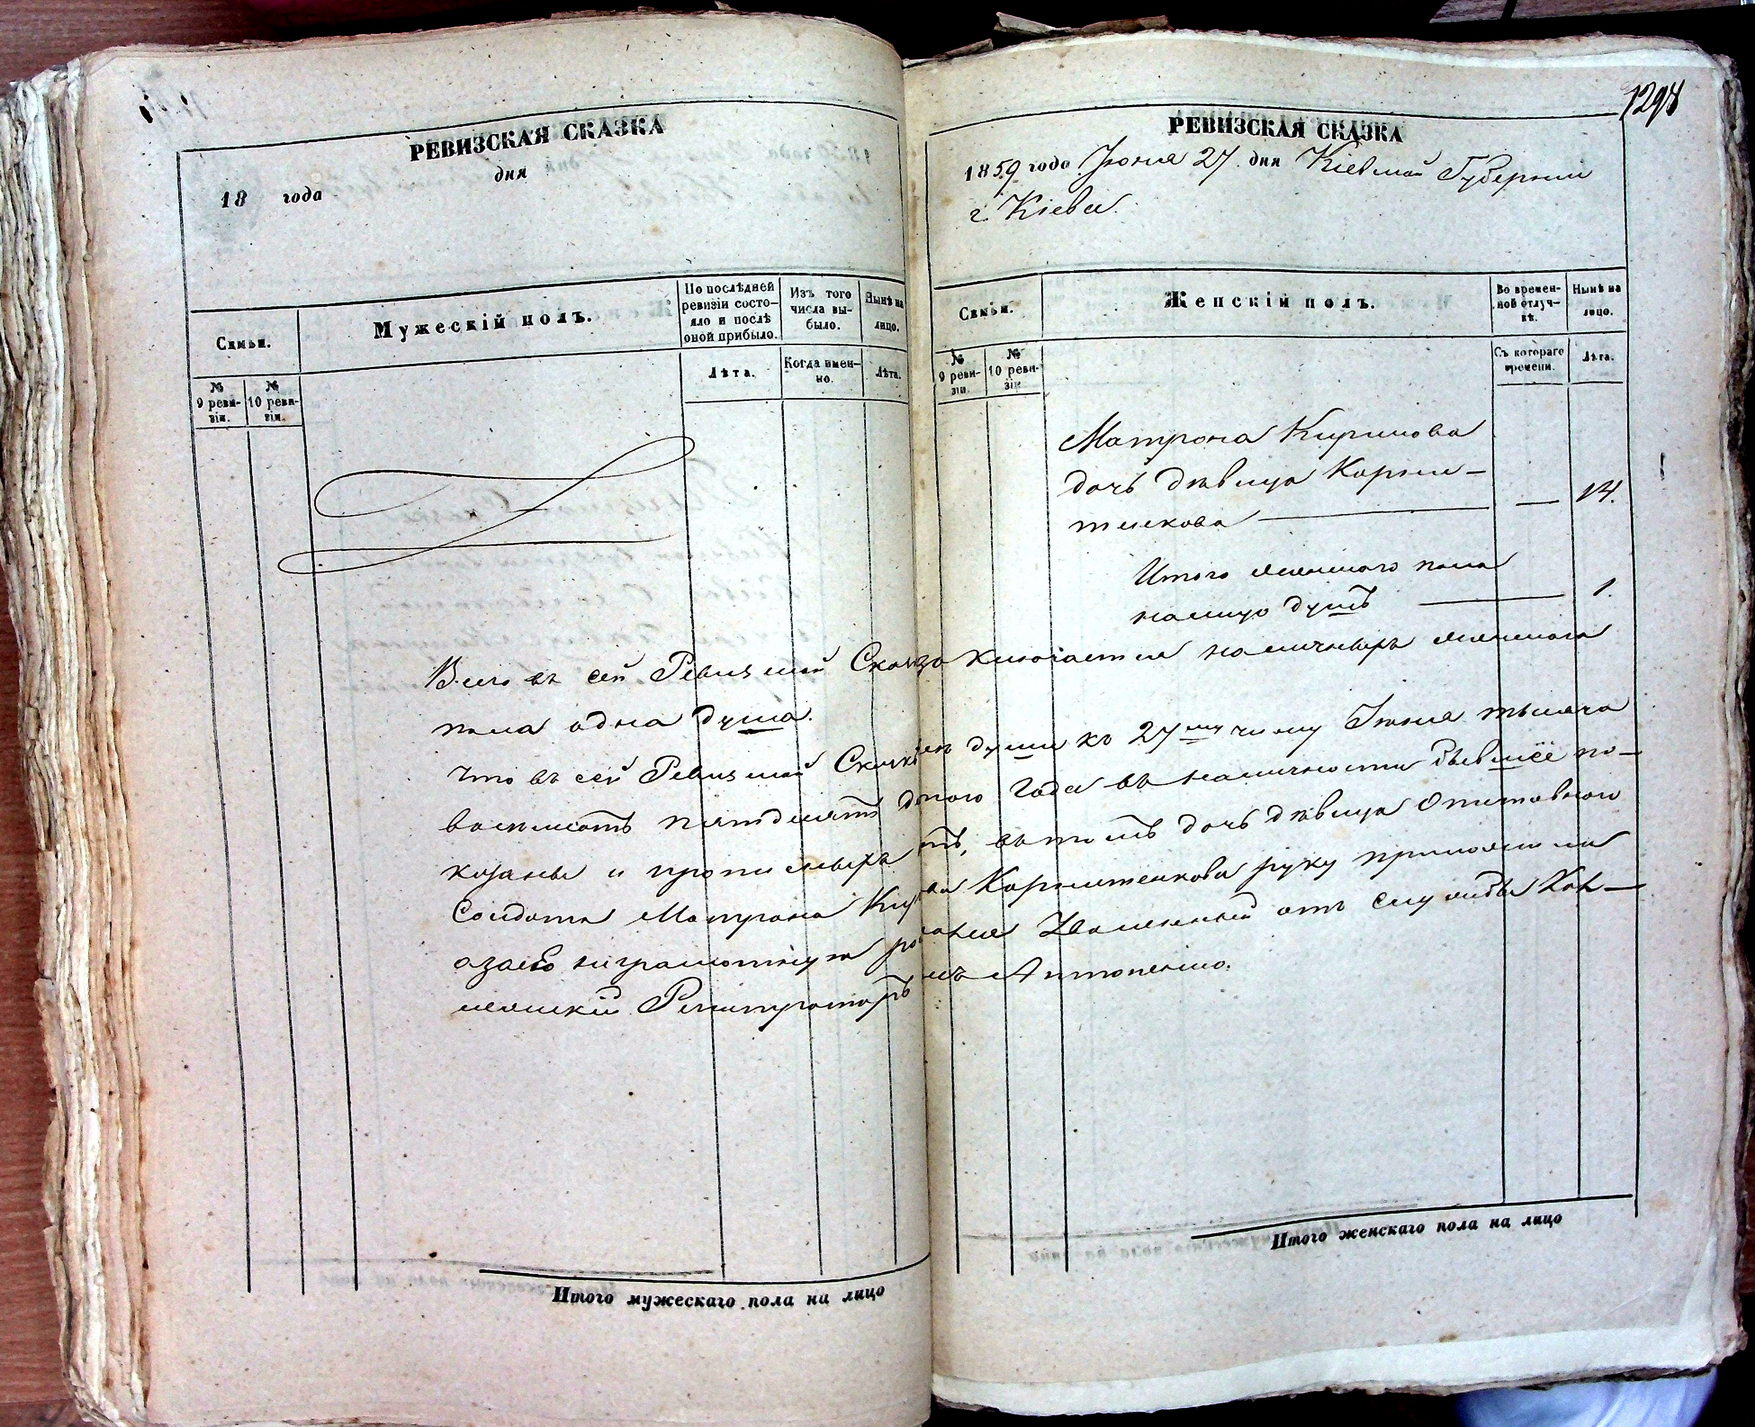 РЕВИЗСКАЯ СКАЗКА
18 года дня
Семьи.
Мужескій полъ.
По послѣдней ревизіи состояло и послѣ оной прибыло.
Изъ того числа выбыло.
Нынѣ на лицо.
№ 9 ревизіи.
№ 10 ревизіи.
Лѣта.
Когда именно.
Лѣта.
1294
РЕВИЗСКАЯ СКАЗКА
1859 года Іюня 27 дня Кіевской Губерніи
г. Кіева.
Семьи.
Женскій полъ.
Во временной отлучкѣ.
Нынѣ на лицо.
№ 9 ревизіи.
№ 10 ревизіи
Съ котораго времени.
Лѣта.
Матрона Кирилова
дочь дѣвица Корни-
тенкова — — 14.
Итого женскаго пола
на лицо душъ — 1.
Всего въ сей Ревизской Сказкѣ наличныхъ женскаго
пола одна душа.
Что въ сей Ревизской Сказкѣ всѣ души къ 27му числу Іюня тысяча
восемьсотъ пятдесятъ года въ наличности бывшіе по-
казаны и прописныхъ нѣтъ, въ томъ дочь дѣвица
Солдата Матрона Кирилова руку приложилъ
а за нею неграмотную от службы Кол-
лежскій Регистраторъ Антоненко.
Итого мужескаго пола на лицо
Итого женскаго пола на лицо